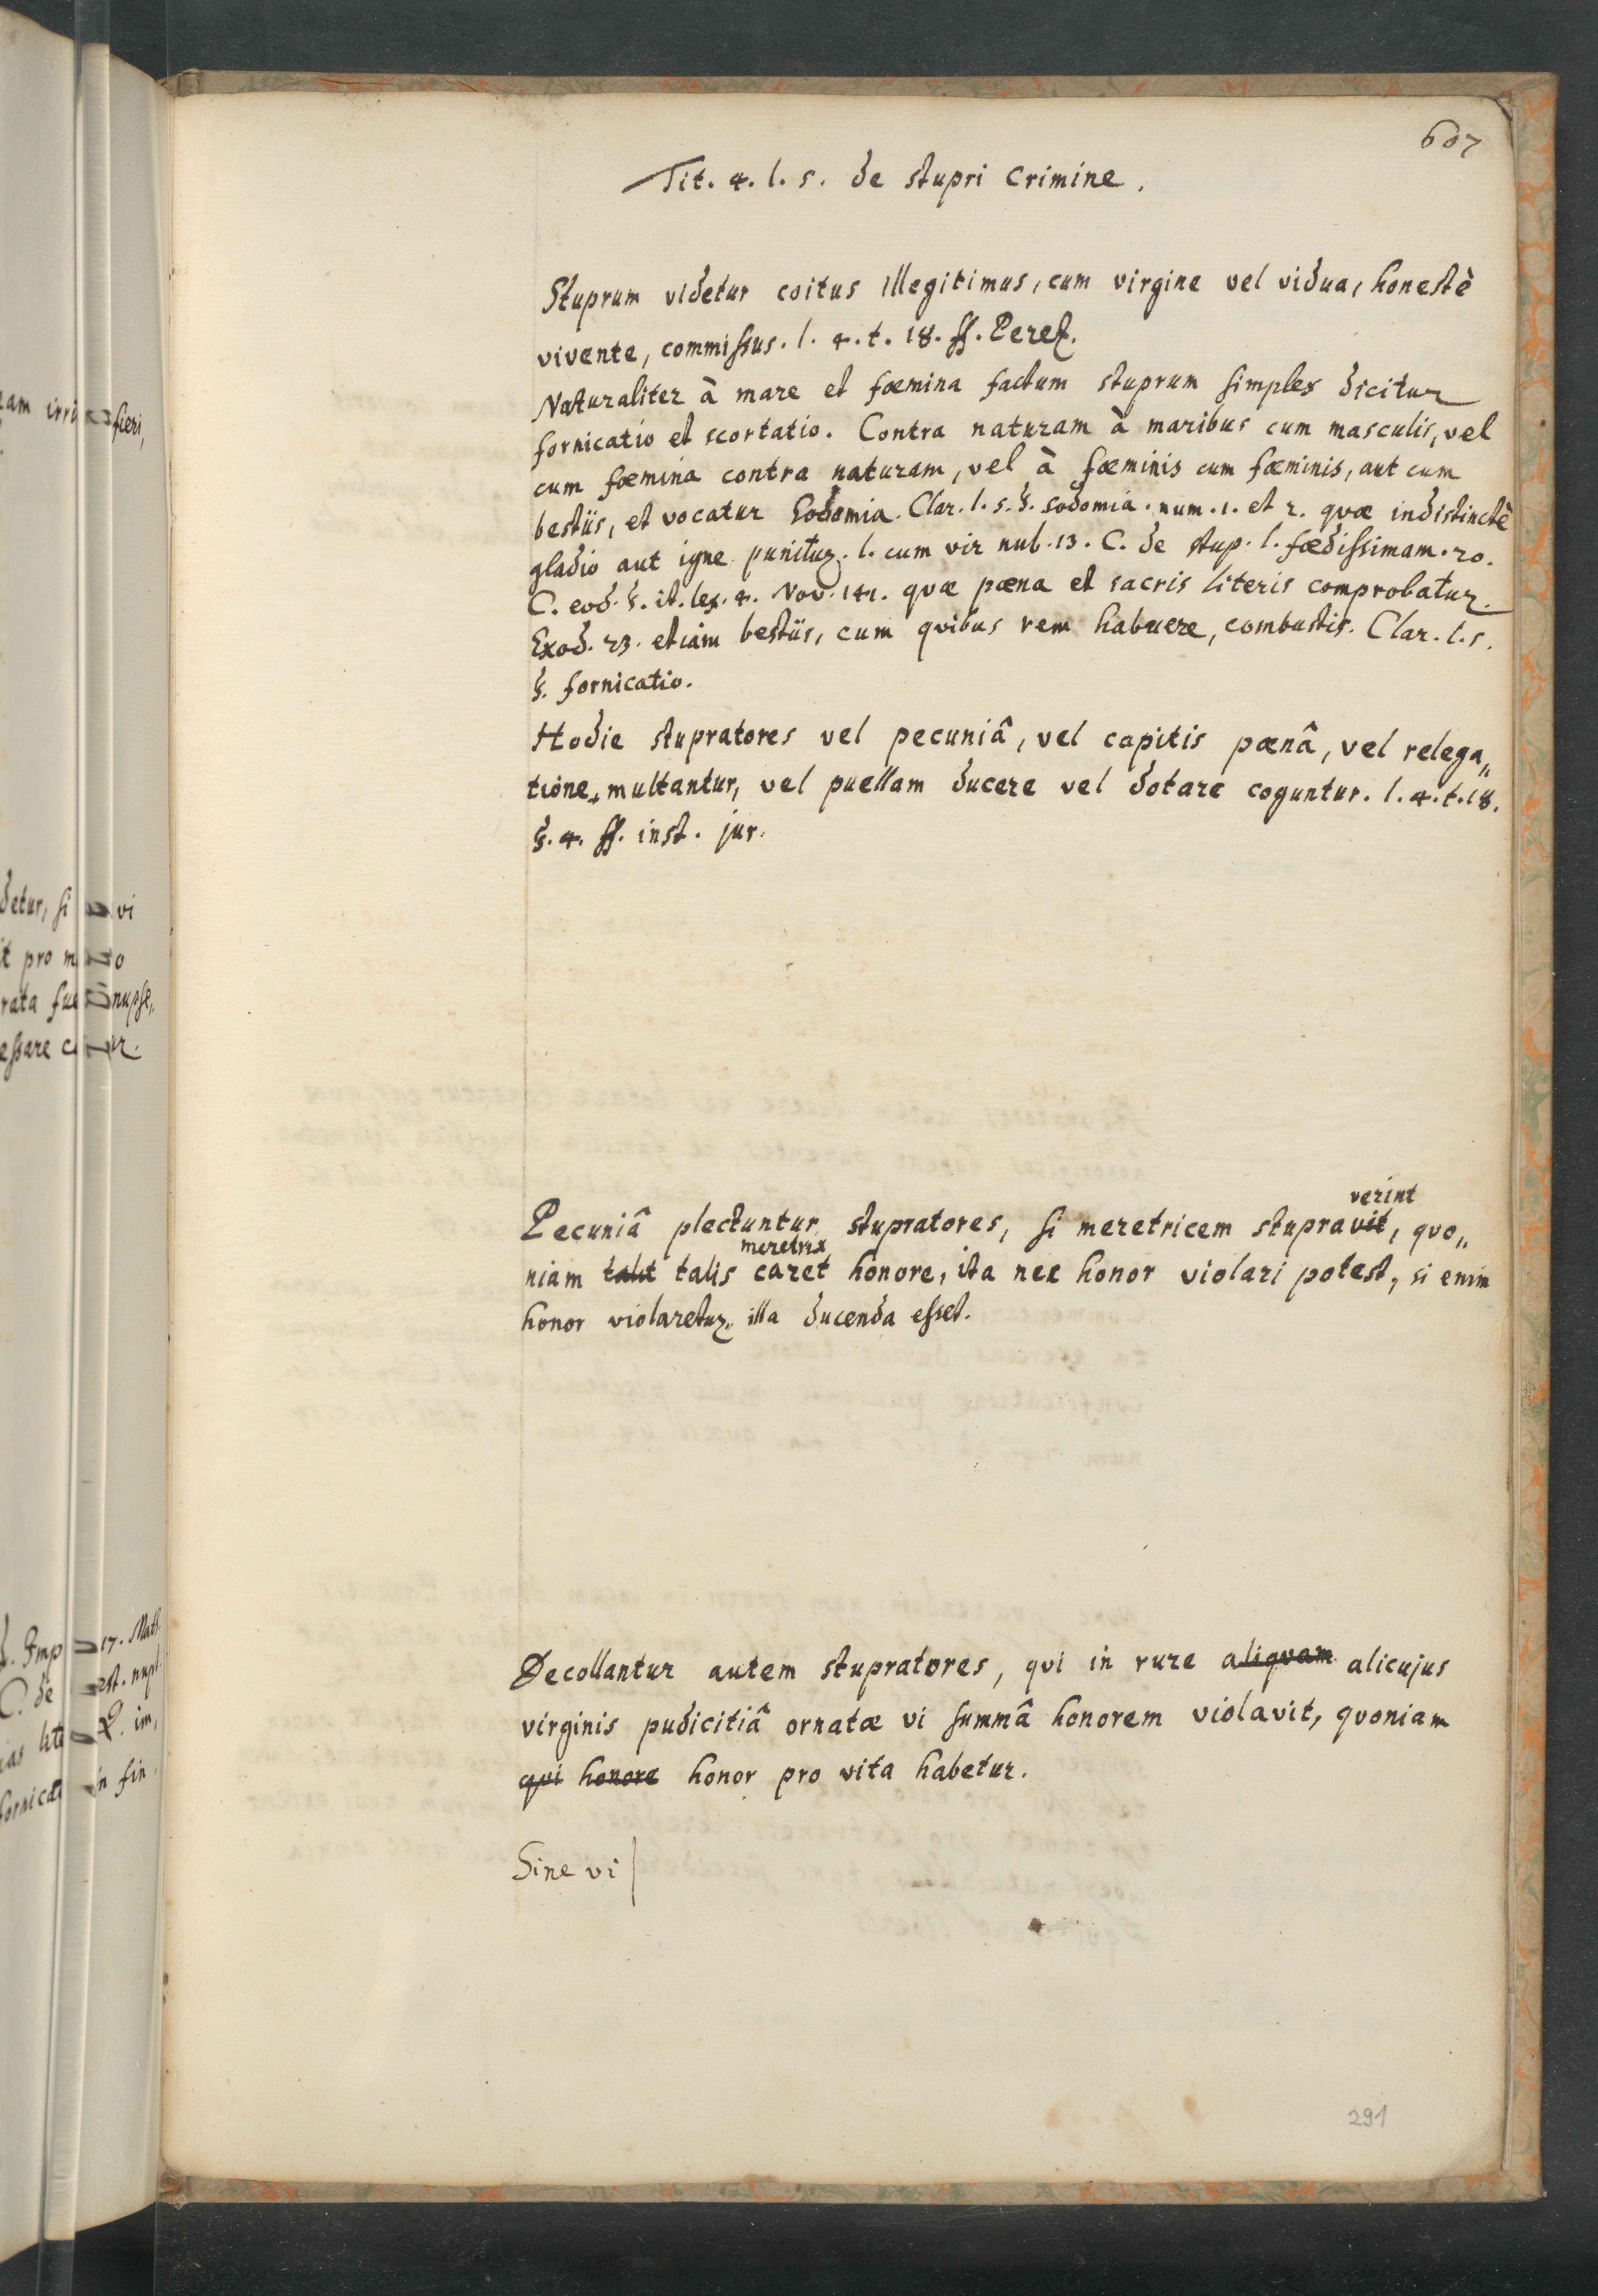 607
Tit. 4. l. 5. de stupri crimine.
Stuprum videtur coitus illegitimus, cum virgine vel vidua, honestè
vivente, commissus. l. 4. t. 18. ff. Perez.
Naturaliter à mare et fœmina factum stuprum simplex dicitur
fornicatio et scortatio. Contra naturam à maribus cum masculis, vel
cum fœmina contra naturam, vel à fœminis cum fœminis, aut cum
bestiis, et vocatur Sodomia. Clar. l. 5. §. sodomia. num. 1. et 2. quæ indistinctè
gladio aut igne punitur. l. cum vir nub. 13. C. de stup. l. fœdissimam. 20.
C. eod. §. it. lex. 4. Nov. 141. quæ pœna et sacris literis comprobatur.
Exod. 23. etiam bestiis, cum quibus rem habuere, combustis. Clar. l. 5.
§. fornicatio.
Hodie stupratores vel pecuniâ, vel capitis pœnâ, vel relega„
tione multantur, vel puellam ducere vel dotare coguntur. l. 4. t. 18.
§. 4. ff. inst. jur.
verint
Pecuniâ plectuntur stupratores, si meretricem stupravit, quo„
meretrix
niam talit talis caret honore, ita nec honor violari potest, si enim
honor violaretur, illa ducenda esset.
Decollantur autem stupratores, qui in rure aliquam alicujus
virginis pudicitiâ ornatæ vi summâ honorem violavit, quoniam
qui honore honor pro vita habetur.
Sine vi
291